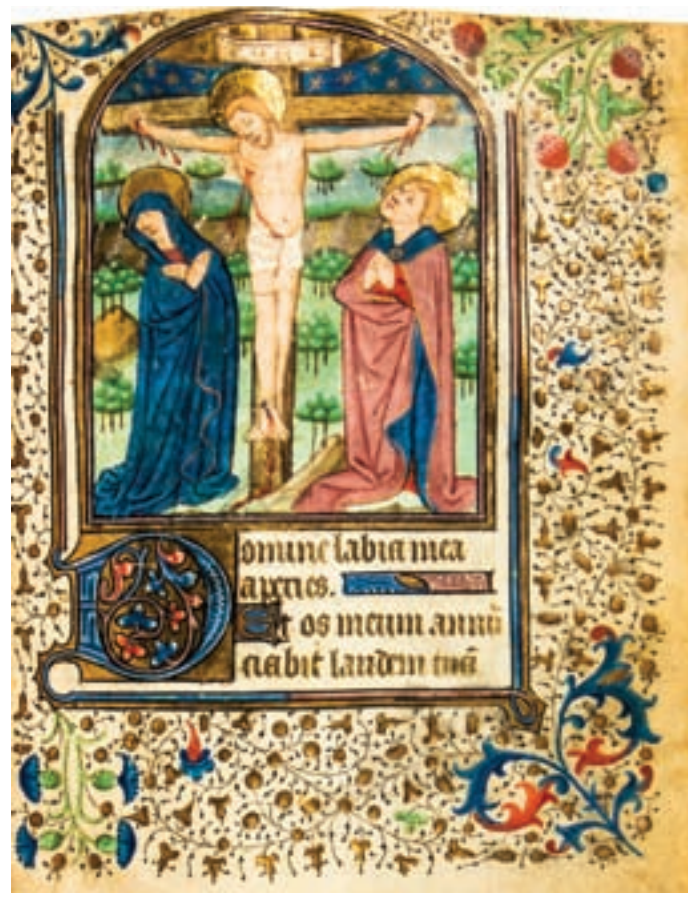 Domine labia mea
aperies.
Et os meum annū
ciabit laudem tuā